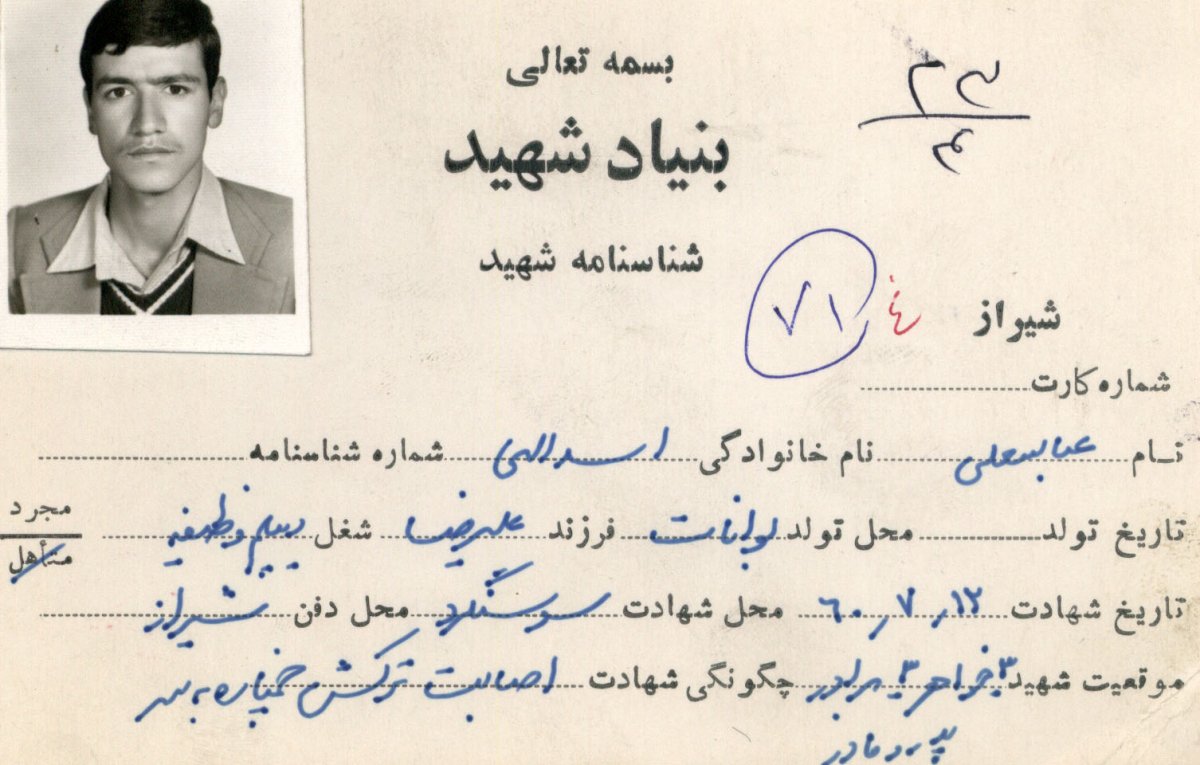 بسمه تعالی
۲۳
۴
بنیاد شهید
شناسنامه شهید
۷۱
٤
شیراز
شماره کارت
نام عباسعلی نام خانوادگی اسدالهی شماره شناسنامه
تاریخ تولد محل تولد بوانات فرزند علیرضا شغل وظیفه
مجرد
متأهل
تاریخ شهادت ۶۰٫۷٫۱۲ محل شهادت سوسنگرد محل دفن شیراز
موقعیت شهید ۳ خواهر ۳ برادر چگونگی شهادت اصابت ترکش خمپاره به سر
پدر و مادر